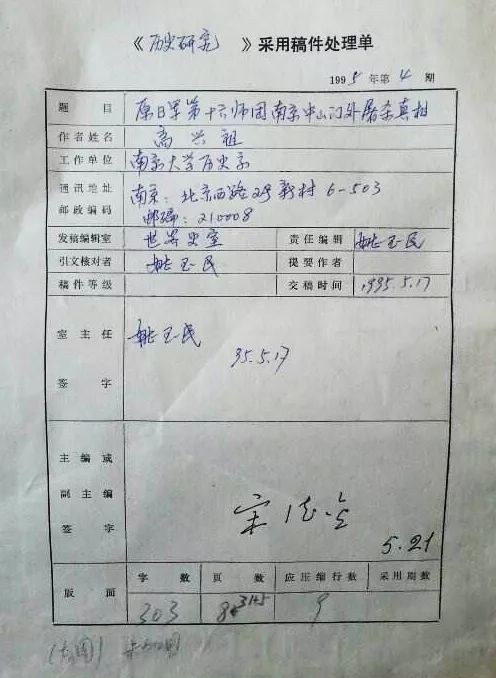 《历史研究》采用稿件处理单
1995年第4期
题目 原日军第十六师团南京中山门外屠杀真相
作者姓名 高兴祖
工作单位 南京大学历史系
通讯地址 南京:北京西路2号新村6-503
邮政编码 邮编:210008
发稿编辑室 世界史室 责任编辑 姚玉民
引文核对者 姚玉民 提要作者
稿件等级 交稿时间 1995.5.17
室主任 姚玉民
95.5.17
签字
主编或
副主编
宋德金
签字
5.21
版面 字数 页数 应压缩行数 采用期数
303 8 3145 9